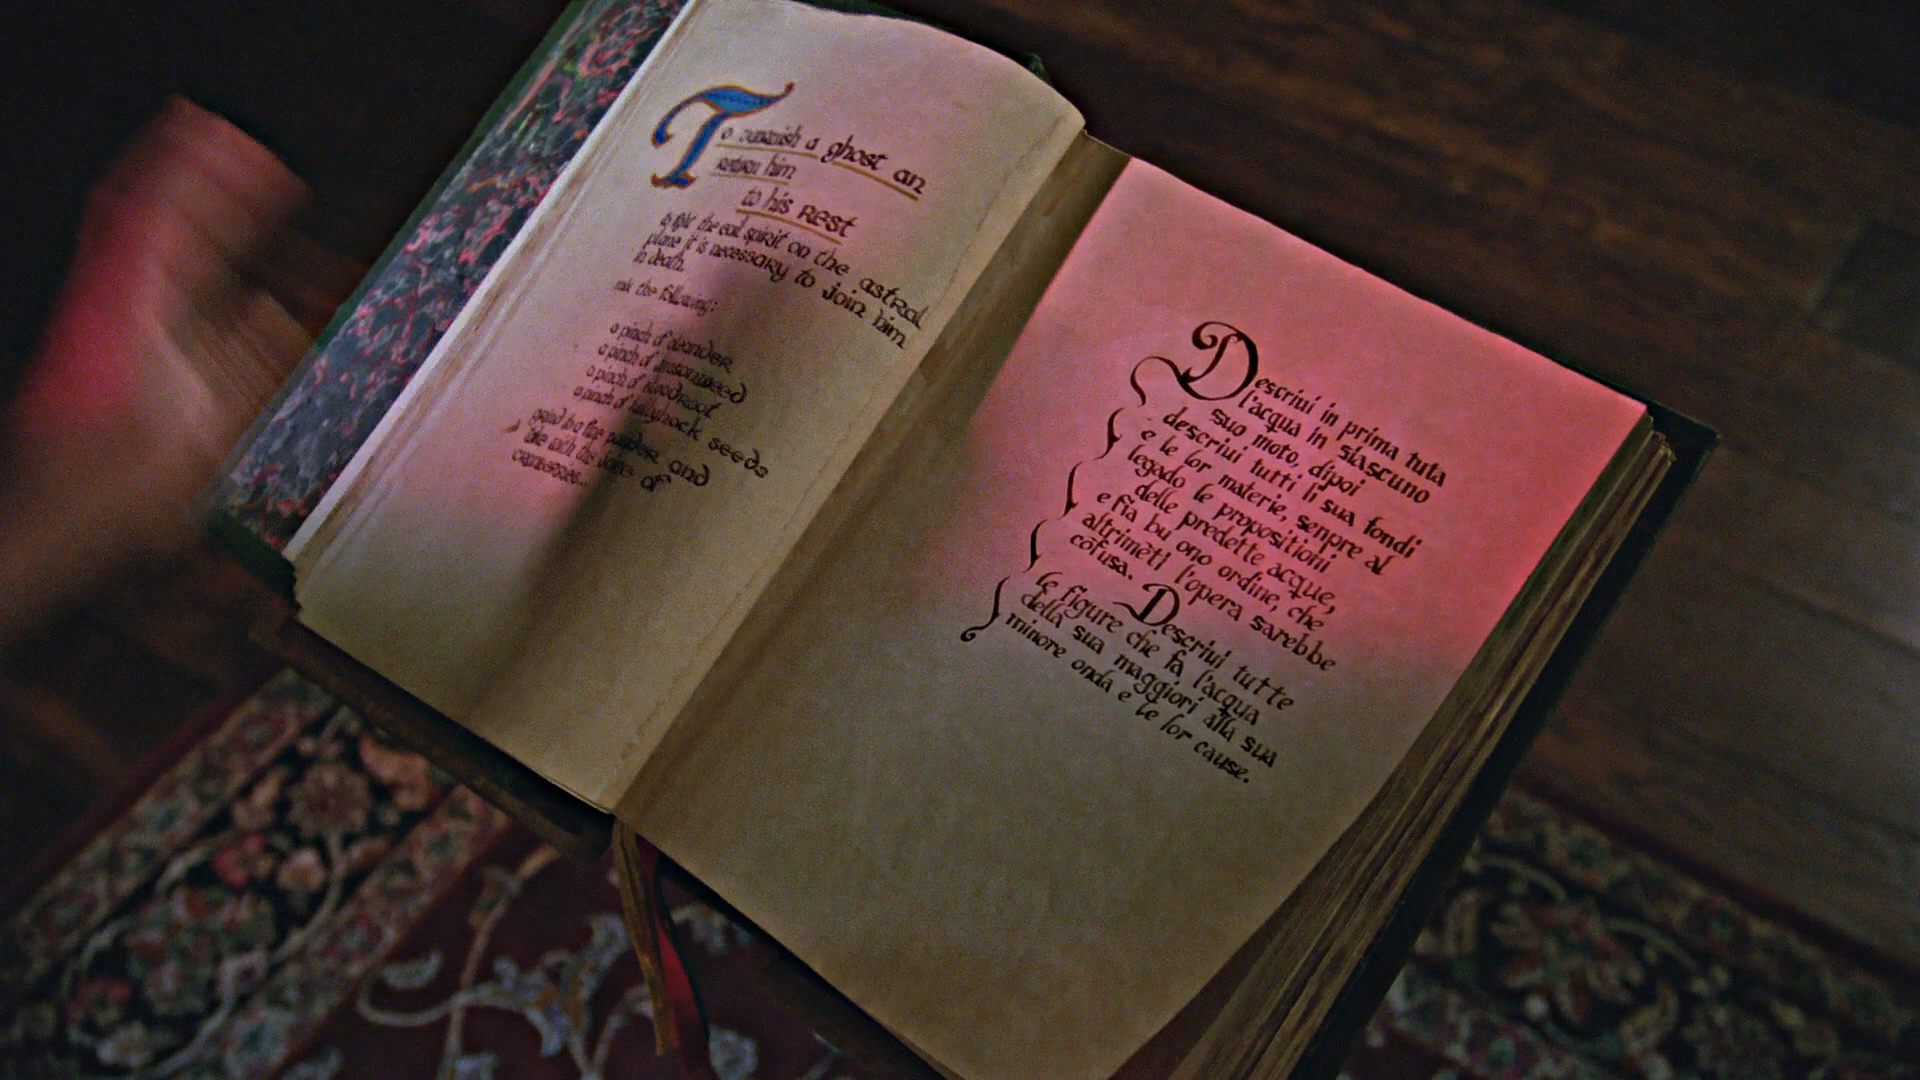 To vanquish a ghost an
return him
to his rest
to fight the evil spirit on the astral
plane it is necessary to join him
in death.
mix the following:
a pinch of
a pinch of
a pinch of bloodroot
a pinch of hollyhock seeds
grind to a fine powder and
take with the juice of
cranberries...
Descriui in prima tuta
l'acqua in siascuno
suo moto, dipoi
descriui tutti li sua fondi
e le lor materie, senpre al
legado le propositioni
delle predette acque,
e fia bu ono ordine, che
altrimēti l'opera sarebbe
cōfusa. Descriui tutte
le figure che fa l'acqua
della sua maggiori alla sua
minore onda e le lor cause.